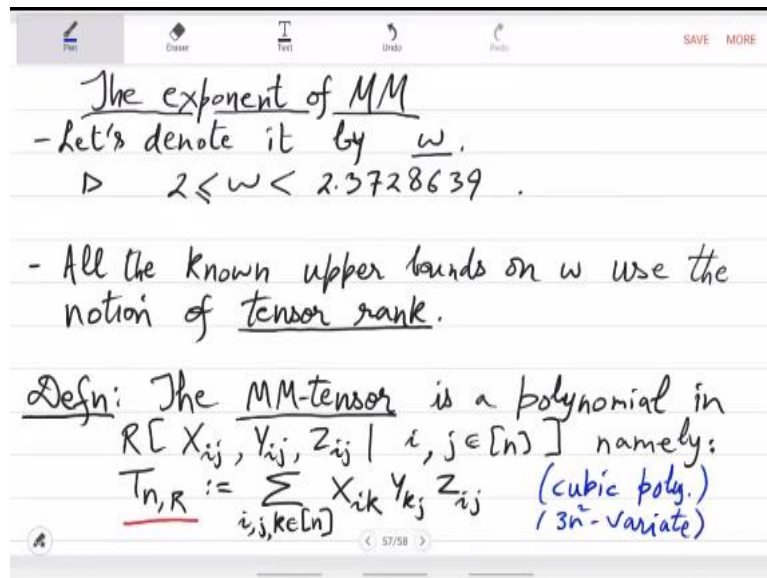 Pen Eraser Text Undo Redo SAVE MORE
The exponent of MM
- Let's denote it by ω.
▷ 2 ≤ ω < 2.3728639 .
- All the known upper bounds on ω use the
notion of tensor rank.
Defn: The MM-tensor is a polynomial in
R[ X_ij, Y_ij, Z_ij | i, j ∈ [n] ] namely:
T_n,R := Σ_{i,j,k∈[n]} X_ik Y_kj Z_ij (cubic poly.)
(3n²-variate)
57/58